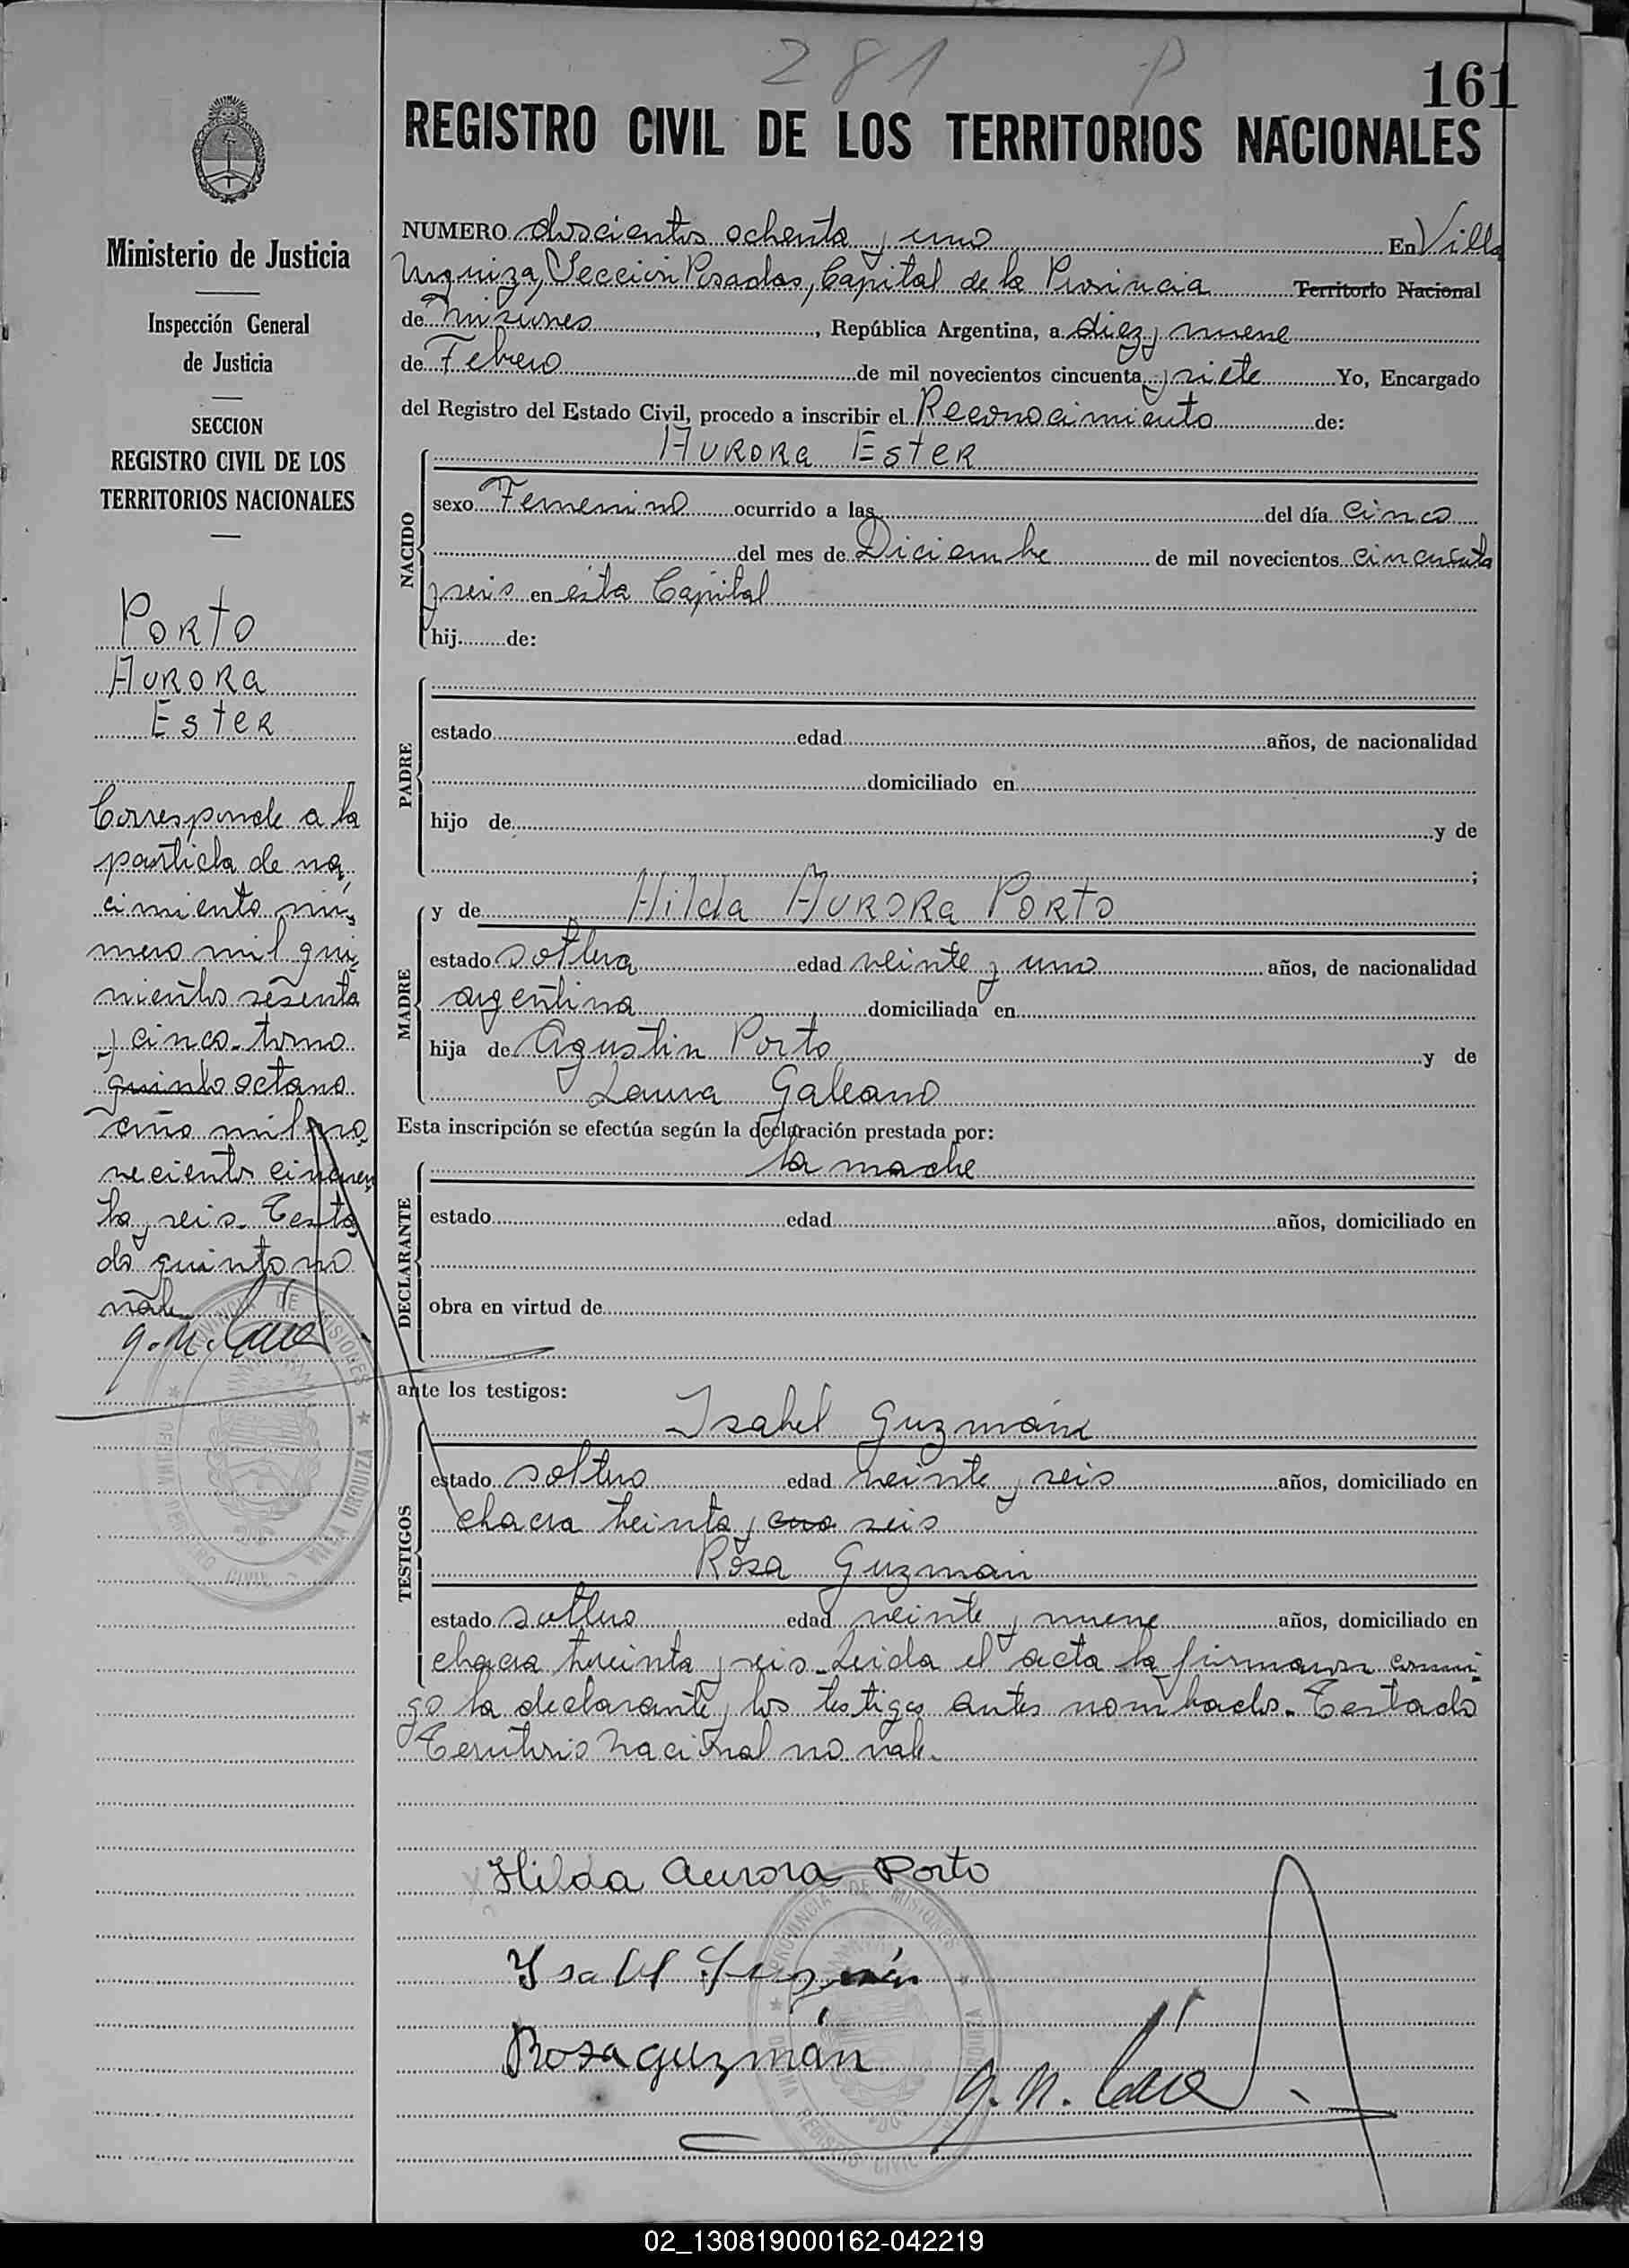 281 P
161
REGISTRO CIVIL DE LOS TERRITORIOS NACIONALES
Ministerio de Justicia
Inspección General
de Justicia
SECCION
REGISTRO CIVIL DE LOS
TERRITORIOS NACIONALES
Porto
Aurora
Ester
Corresponde a la
partida de na
cimiento nú
mero mil qui
nientos sesenta
y cinco. tomo
quinto octavo
año mil no
vecientos cincuen
ta y seis. Testa
do quinto no
vale
NUMERO doscientos ochenta y uno En Villa
Urquiza, Sección Posadas, Capital de la Provincia Territorio Nacional
de Misiones, República Argentina, a diez y nueve
de Febrero de mil novecientos cincuenta y siete Yo, Encargado
del Registro del Estado Civil, procedo a inscribir el Reconocimiento de:
NACIDO
Aurora Ester
sexo Femenino ocurrido a las del día cinco
del mes de Diciembre de mil novecientos cincuenta
y seis en esta Capital
hij de:
PADRE
estado edad años, de nacionalidad
domiciliado en
hijo de y de
;
MADRE
y de Hilda Aurora Porto
estado soltera edad veinte y uno años, de nacionalidad
argentina domiciliada en
hija de Agustin Porto y de
Laura Galeano
Esta inscripción se efectúa según la declaración prestada por:
DECLARANTE
la madre
estado edad años, domiciliado en
obra en virtud de
ante los testigos:
TESTIGOS
Isabel Guzmán
estado soltero edad veinte y seis años, domiciliado en
chacra treinta y seis
Rosa Guzman
estado soltero edad veinte y nueve años, domiciliado en
chacra treinta y seis. Leida el acta la firmaron conmi
go la declarante y los testigos antes nombrados. Testado
Territorio Nacional no vale.
Hilda Aurora Porto
Isabel Guzmán
Rosa guzmán
PROVINCIA DE MISIONES
VILLA URQUIZA
OFICINA REGISTRO CIVIL
02_130819000162-042219